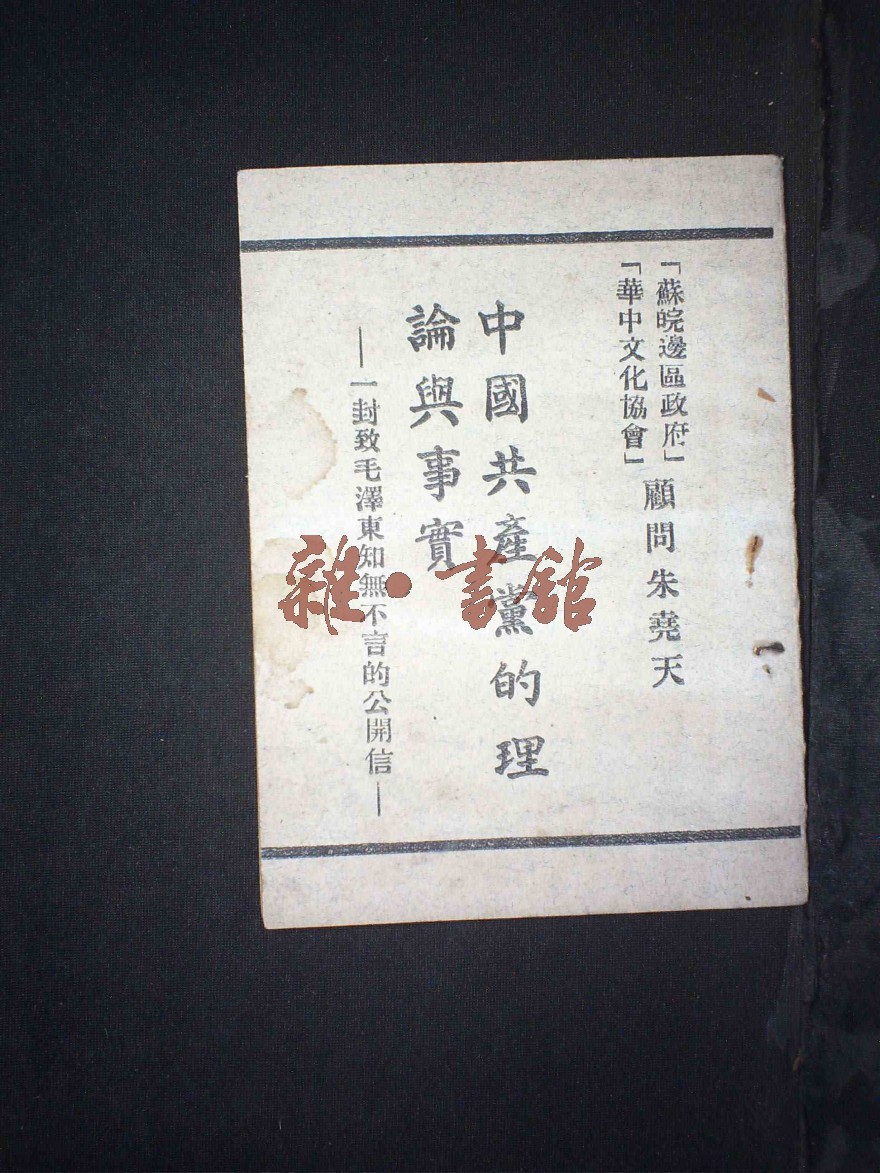 「蘇皖邊區政府」
「華中文化協會」
顧問朱堯天
中國共產黨的理
論與事實
—一封致毛澤東知無不言的公開信—
雜·書館